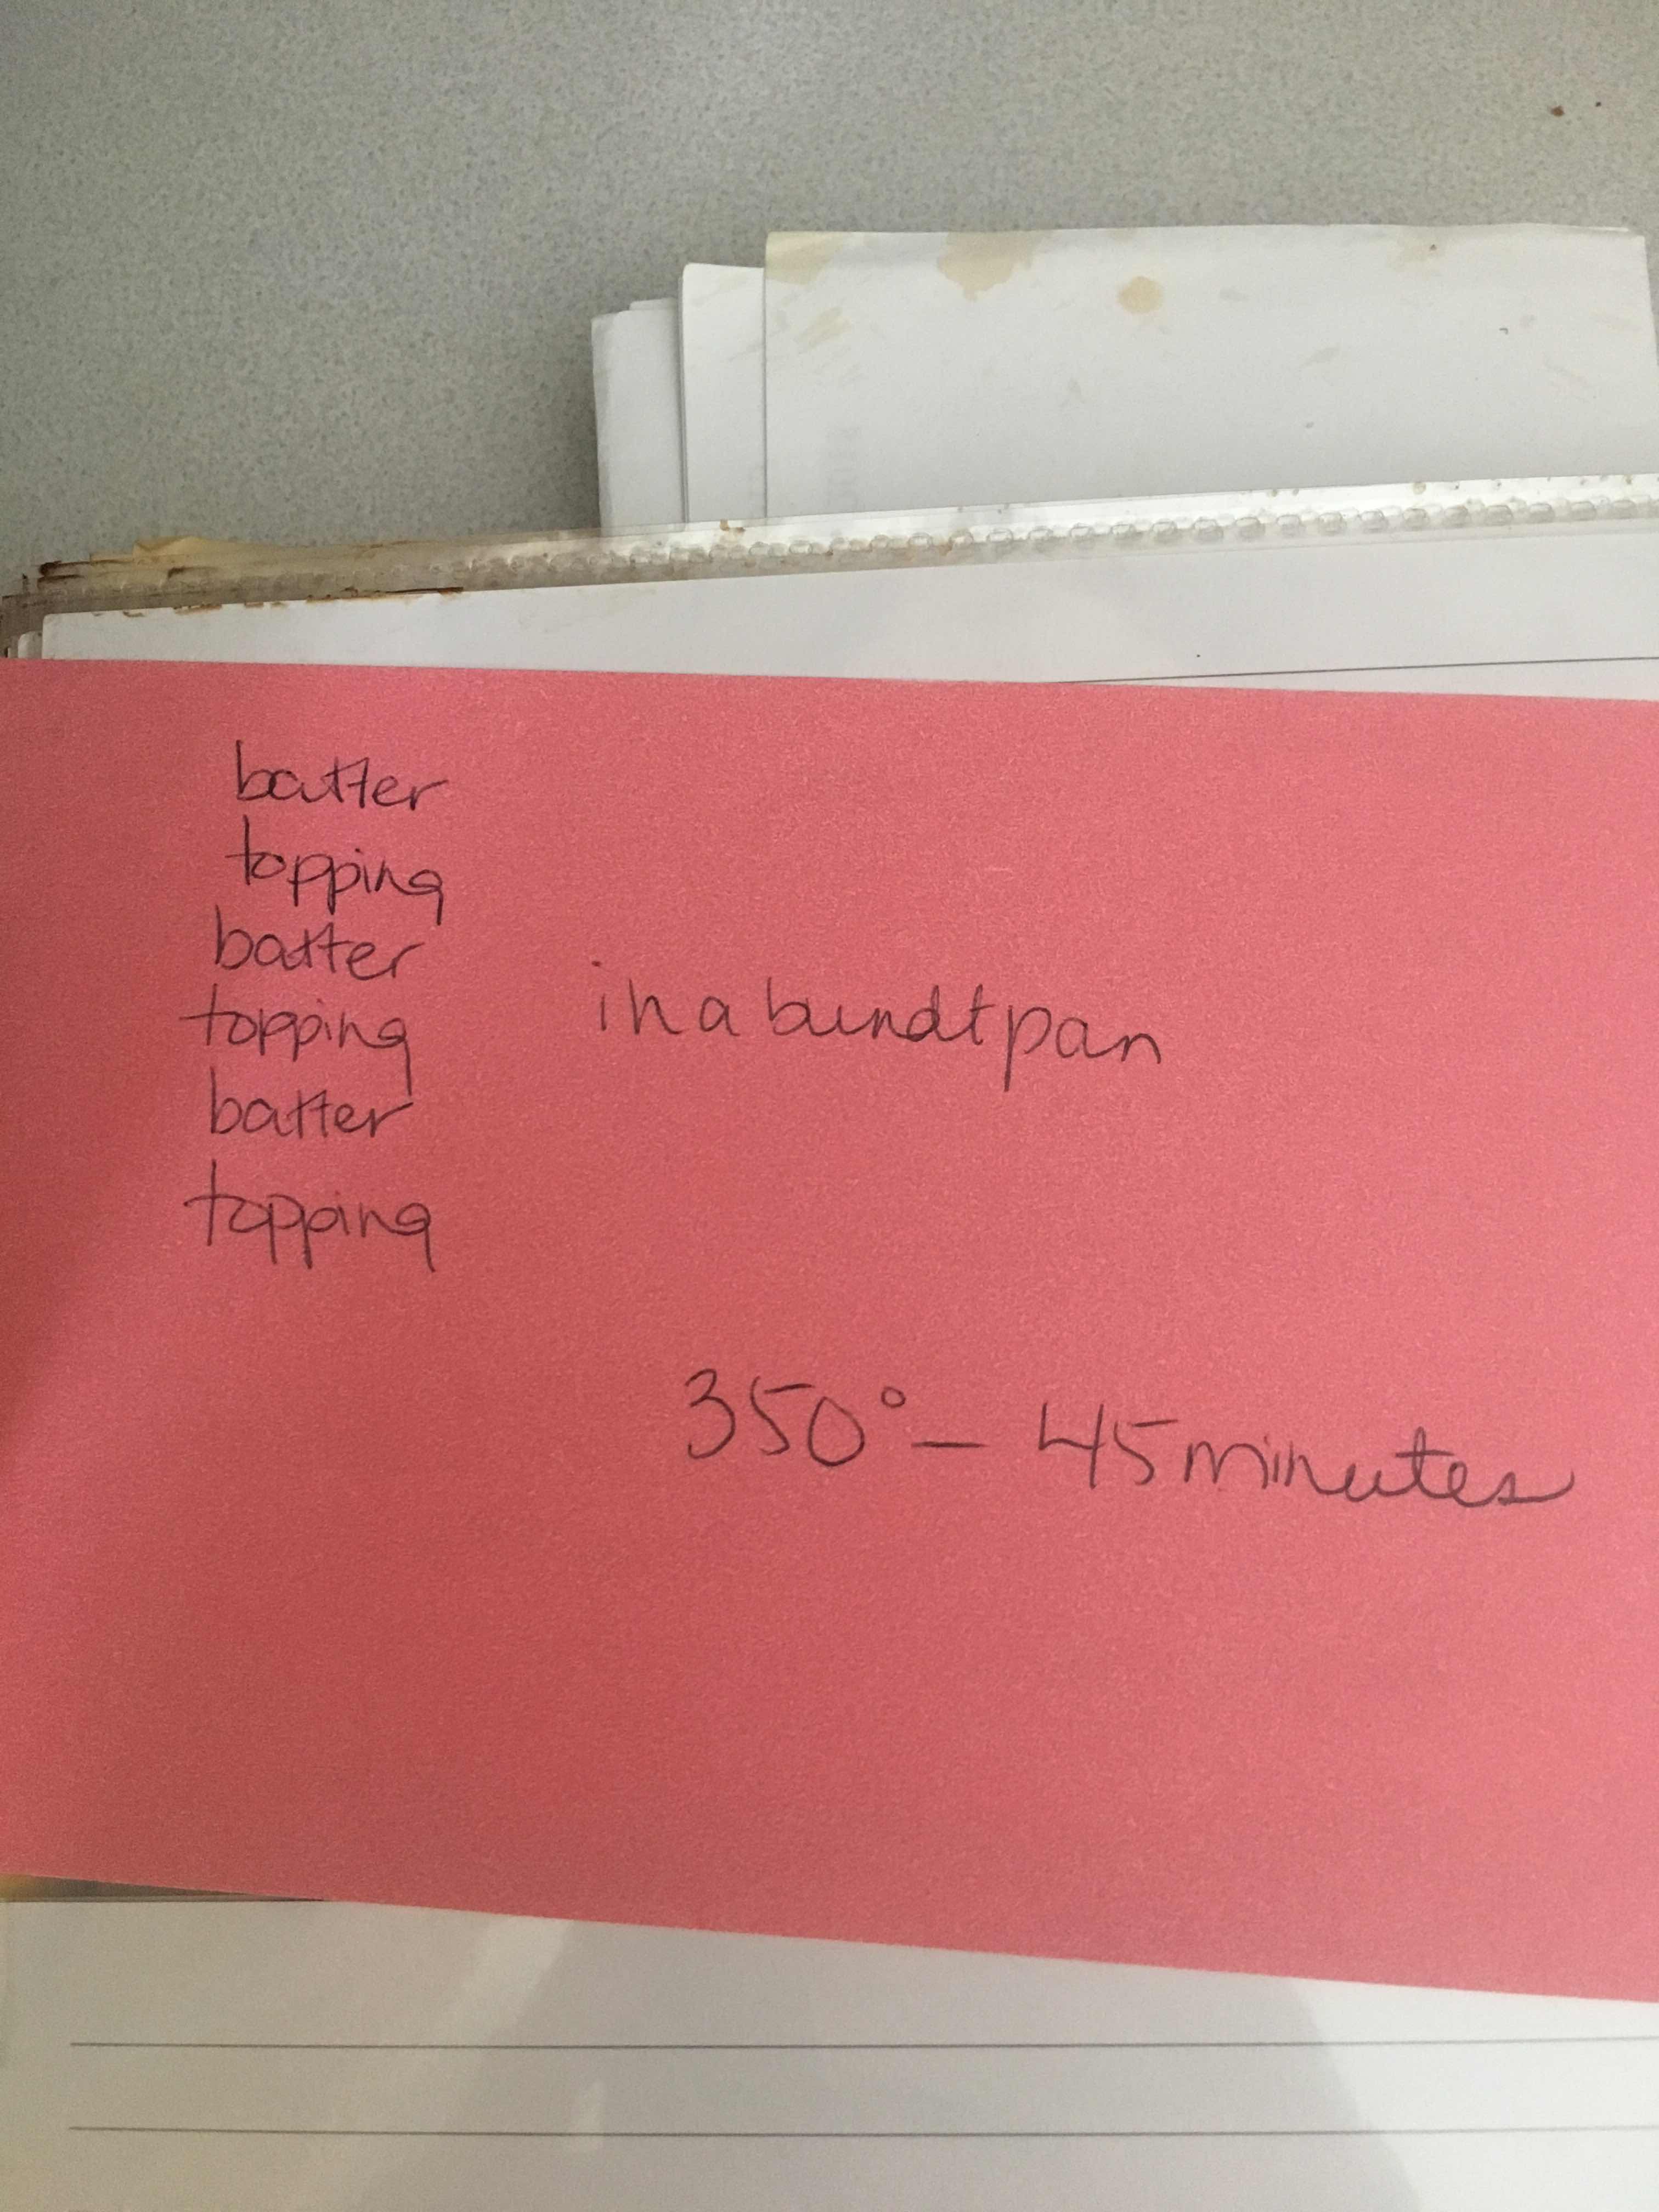 batter
topping
batter
topping
in a bundt pan
batter
topping
350° – 45 minutes